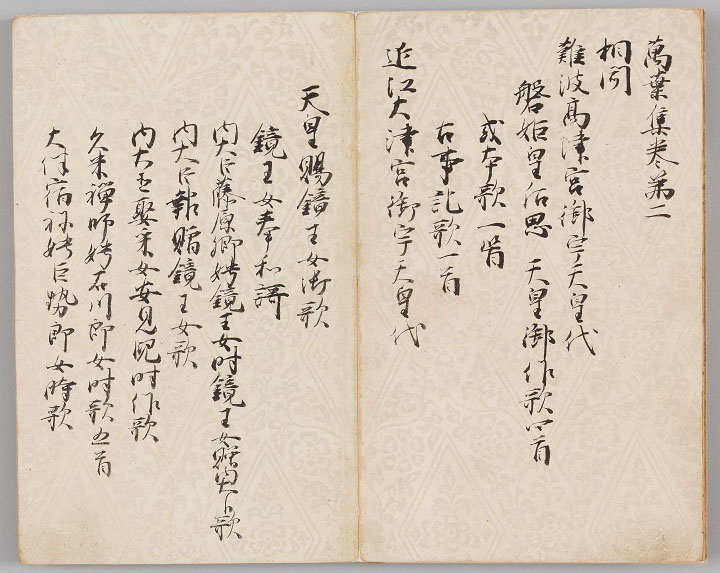 萬葉集卷第二
相聞
難波高津宮御宇天皇代
磐姫皇后思天皇御作歌四首
或本歌一首
古事記歌一首
近江大津宮御宇天皇代
天皇賜鏡王女御歌
鏡王女奉和謌
内大臣藤原卿娉鏡王女時鏡王女贈内大臣歌
内大臣報贈鏡王女歌
内大臣娶采女安見児時作歌
久米禅師娉石川郎女時歌五首
大伴宿祢娉巨勢郎女時歌